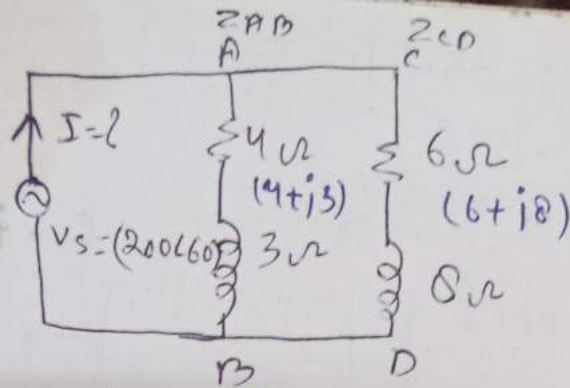 ZAB ZCD
A C
I=?
4Ω 6Ω
(4+j3) (6+j8)
Vs=(200∠60) 3Ω 8Ω
B D